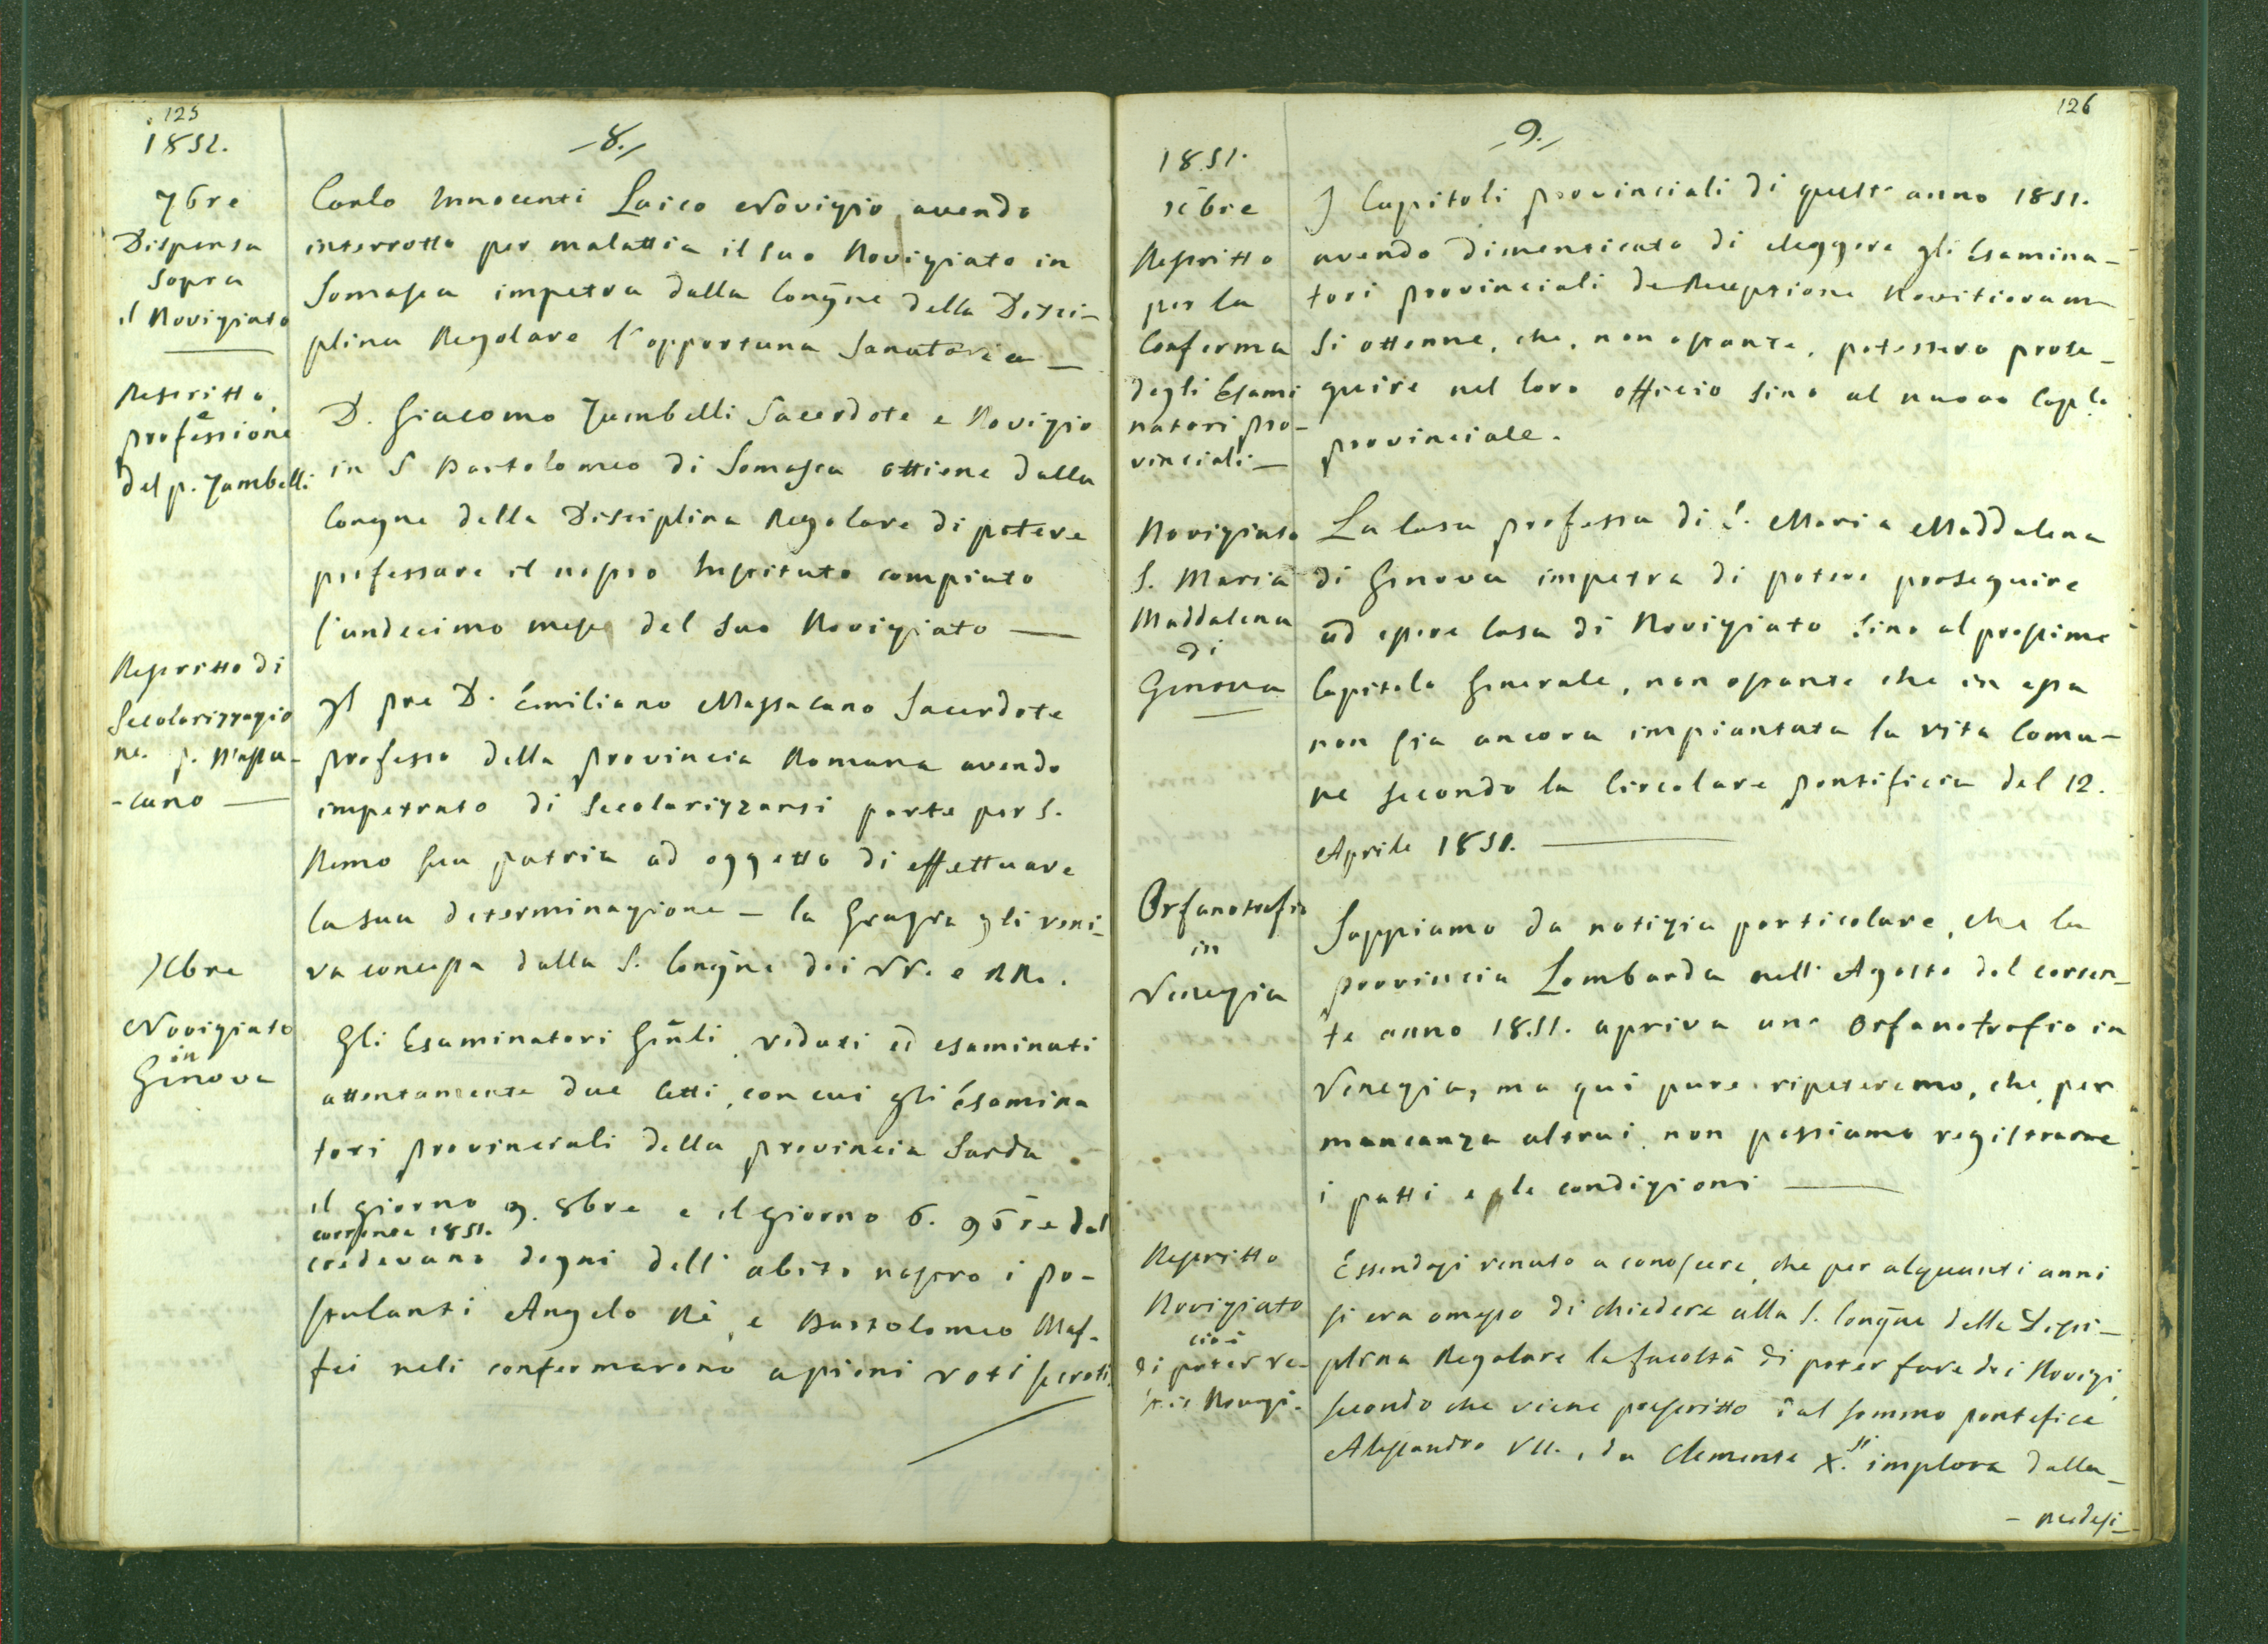 125
1851.
-8.-
7bre
Dispensa
sopra
il Noviziato
Carlo Innocenti Laico Novizio, avendo
interrotto per malattia il suo Noviziato in
Somasca impetra dalla Congne della Disci-
plina Regolare l'opportuna Sanatoria —
Rescritto,
e
professione
del p. Zambelli
D. Giacomo Zambelli Sacerdote e Novizio
in S. Bartolomeo di Somasca ottiene dalla
Congne della Disciplina Regolare di potere
professare il nostro Instituto compiuto
l'undecimo mese del suo Noviziato —
Rescritto di
Secolarizzazio
ne. p. Massa-
-cano —
Il pre D. Emiliano Massacano Sacerdote
professo della provincia Romana avendo
impetrato di secolarizzarsi parte per S.
Remo sua patria ad oggetto di effettuare
la sua determinazione — la Grazia gli veni-
va concessa dalla S. Congne dei VV. e RR.
Xbre
Noviziato
in
Genova
Gli Esaminatori Gñli, veduti ed esaminati
attentamente due Atti, con cui gli Esamina
tori provinciali della provincia Sarda
il giorno 9. 8bre e il giorno 6. 9bre del
corrente 1851.
credevano degni dell'abito nostro i po-
stulanti Angelo Rè, e Bartolomeo Maf-
fei neli confermarono a pieni voti secreti.
126
-9.-
1851.
Xbre
Rescritto
per la
Conferma
degli Esami
natori pro-
vinciali —
I Capitoli provinciali di quest'anno 1851.
avendo dimenticato di eleggere gli Esamina-
tori provinciali de Receptione Novitiorum
si ottenne, che, non ostante, potessero prose-
guire nel loro officio sino al nuovo Caplo
provinciale.
Noviziato
S. Maria
Maddalena
di
Genova
La Casa professa di S. Maria Maddalena
di Genova impetra di potere proseguire
ad essere Casa di Noviziato sino al prossimo
Capitolo Generale, non ostante che in essa
non sia ancora impiantata la vita Comu-
ne secondo la Circolare pontificia del 12.
Aprile 1851. —
Orfanotrofio
in
Venezia
Sappiamo da notizia particolare, che la
provincia Lombarda nell'Agosto del corren-
te anno 1851. apriva uno Orfanotrofio in
Venezia, ma qui pure ripeteremo, che, per
mancanza altrui, non possiamo registrarne
i patti e le condizioni —
Rescritto
Noviziato
cioè
di poter ve-
stir Novizi.
Essendosi venuto a conoscere, che per alquanti anni
si era omesso di chiedere alla S. Congne della Disci-
plina Regolare la facoltà di poter fare dei Novizi,
secondo che viene prescritto dal sommo pontefice
Alessandro VII., da Clemente X. si implora dalla-
- medesi-